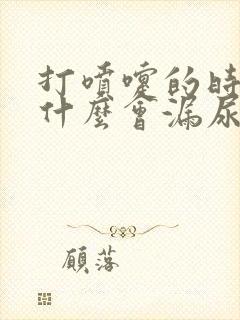 打噴嚏的時
什麼會漏尿
顧落